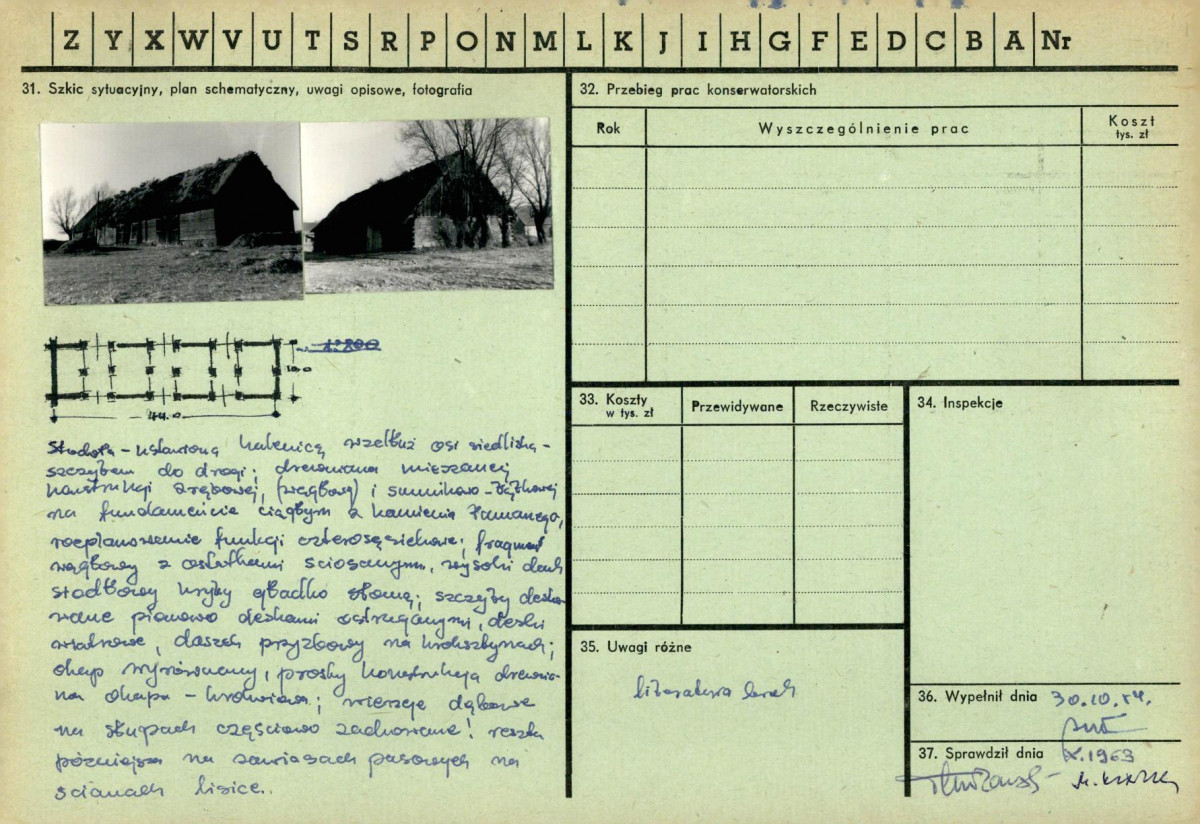 Z Y X W V U T S R P O N M L K J I H G F E D C B A Nr
31. Szkic sytuacyjny, plan schematyczny, uwagi opisowe, fotografia
1:200
10.0
44.0
Stodoła - ustawiona kalenicą wzdłuż osi siedliska -
szczytem do drogi; drewniana mieszanej
konstrukcji zrębowej, (węgłowej) i sumikowo-łątkowej
na fundamencie ciągłym z kamienia łamanego,
rozplanowanie funkcji czterosąsiekowe; fragment
węgłowy z ostatkami ściosanymi, wysoki dach
siodłowy kryty gładko słomą; szczyty desko-
wane pionowo deskami ostruganymi, deski
wiatrowe, daszek przyzbowy na kroksztynach;
okap wyrównany, konstrukcja drewnia-
na okapu - ; wierzeje dębowe
na słupach częściowo zachowane! reszta
późniejsza na zawiasach pasowych na
ścianach lisice.
32. Przebieg prac konserwatorskich
Rok Wyszczególnienie prac Koszt tys. zł
33. Koszty w tys. zł Przewidywane Rzeczywiste
34. Inspekcje
35. Uwagi różne
literatura brak
36. Wypełnił dnia 30.10.54.
37. Sprawdził dnia X.1963